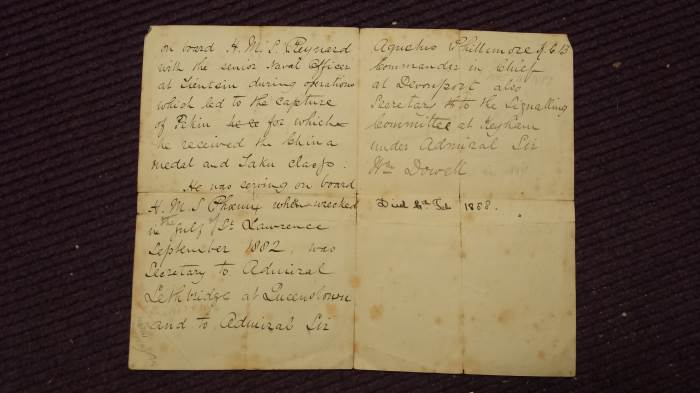 on board H.M.S. Reynard
with the senior Naval Officer
at Tientsin during operations
which led to the capture
of Pekin he for which
he received the China
medal and Taku clasp.
He was serving on board
H.M.S Phœnix when wrecked
in the Gulf of St. Lawrence
September 1882, was
Secretary to Admiral
Lethbridge at Queenstown
and to Admiral Sir
Agustus Phillimore K.C.B
Commander in Chief
at Devonport also
Secretary to the Signalling
Committee at Keyham
under Admiral Sir
Wm Dowell
Died 6th Feb 1888.